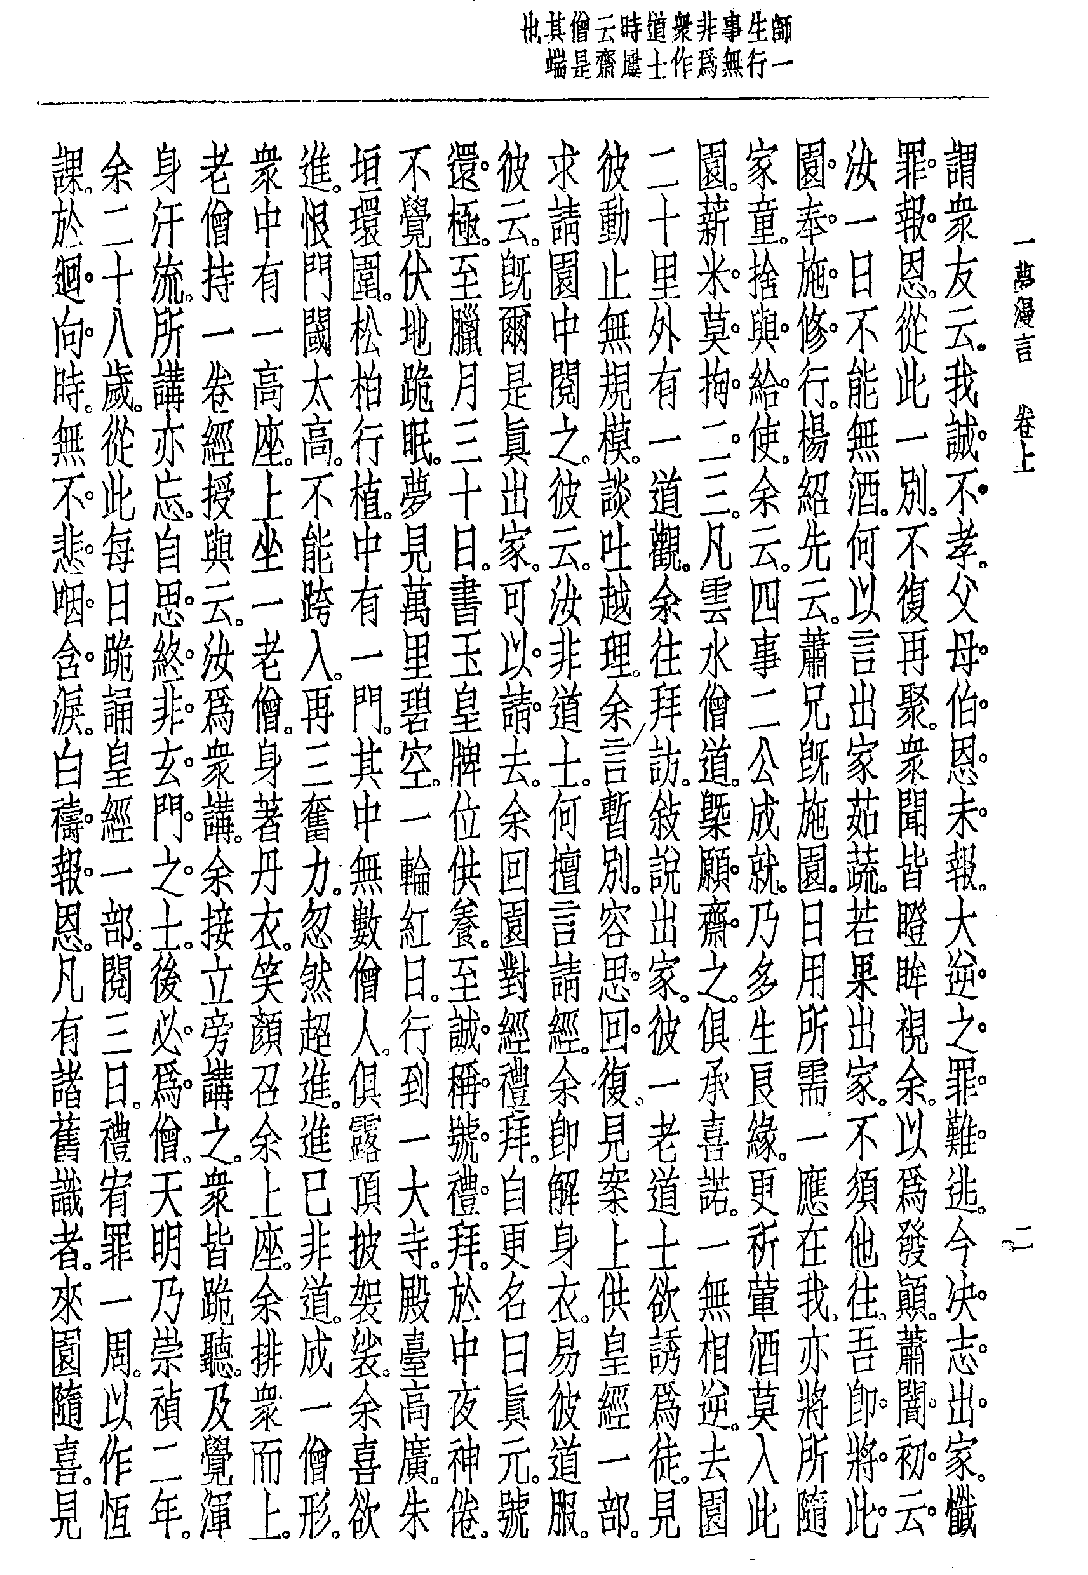 師一
生行
事無
非爲
衆作
道士
時屢
云齋
僧是
其端
也
一萬漫言 卷上 二
謂衆友云。我誠不孝。父母伯恩未報。大逆之罪難逃。今决志出家。懺
罪報恩。從此一別。不復再聚。衆聞皆瞪眸視余。以爲發顚。蕭闇初云。
汝一日不能無酒。何以言出家茹蔬。若果出家。不須他往。吾卽將此
園奉施修行。楊紹先云。蕭兄旣施園。日用所需。一應在我。亦將所隨
家童。捨與給使。余云。四事二公成就。乃多生良緣。更祈葷酒莫入此
園。薪米莫拘二三。凡雲水僧道。槩願齋之。俱承喜諾。一無相逆。去園
二十里外有一道觀。余往拜訪。敍說出家。彼一老道士欲誘爲徒。見
彼動止無規模。談吐越理。余言暫別。容思回復。見案上供皇經一部。
求請園中閱之。彼云。汝非道士。何擅言請經。余卽解身衣。易彼道服。
彼云。旣爾是眞出家。可以請去。余回園對經禮拜。自更名曰眞元。號
還極。至臘月三十日。書玉皇牌位供養。至誠稱號禮拜。於中夜神倦
不覺伏地跪眠。夢見萬里碧空。一輪紅日。行到一大寺。殿臺高廣。朱
垣環圍。松柏行植。中有一門。其中無數僧人。俱露頂披袈裟。余喜欲
進。恨門閫太高。不能跨入。再三奮力。忽然超進。進已非道。成一僧形。
衆中有一高座。上坐一老僧。身著丹衣。笑顏召余上座。余排衆而上。
老僧持一卷經。授與云。汝爲衆講。余接立旁講之。衆皆跪聽。及覺渾
身汗流。所講亦忘。自思終非玄門之士。後必爲僧。天明乃崇禎二年。
余二十八歲。從此每日跪誦皇經一部。閱三日。禮宥罪一周。以作恆
課。於迴向時。無不悲咽含淚。白禱報恩。凡有諸舊識者。來園隨喜。見